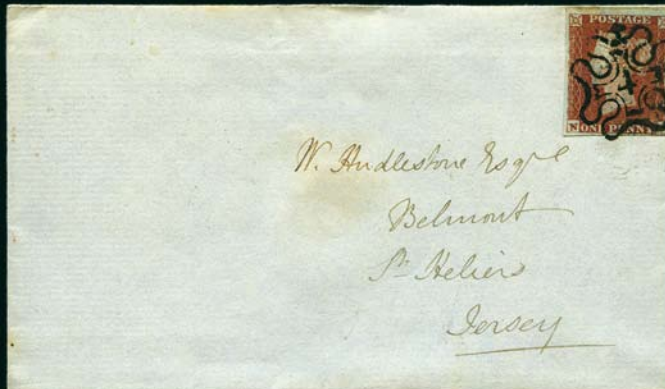 POSTAGE
4
N ONE PENNY
W. Hudlestone Esqre
Belmont
St. Heliers
Jersey